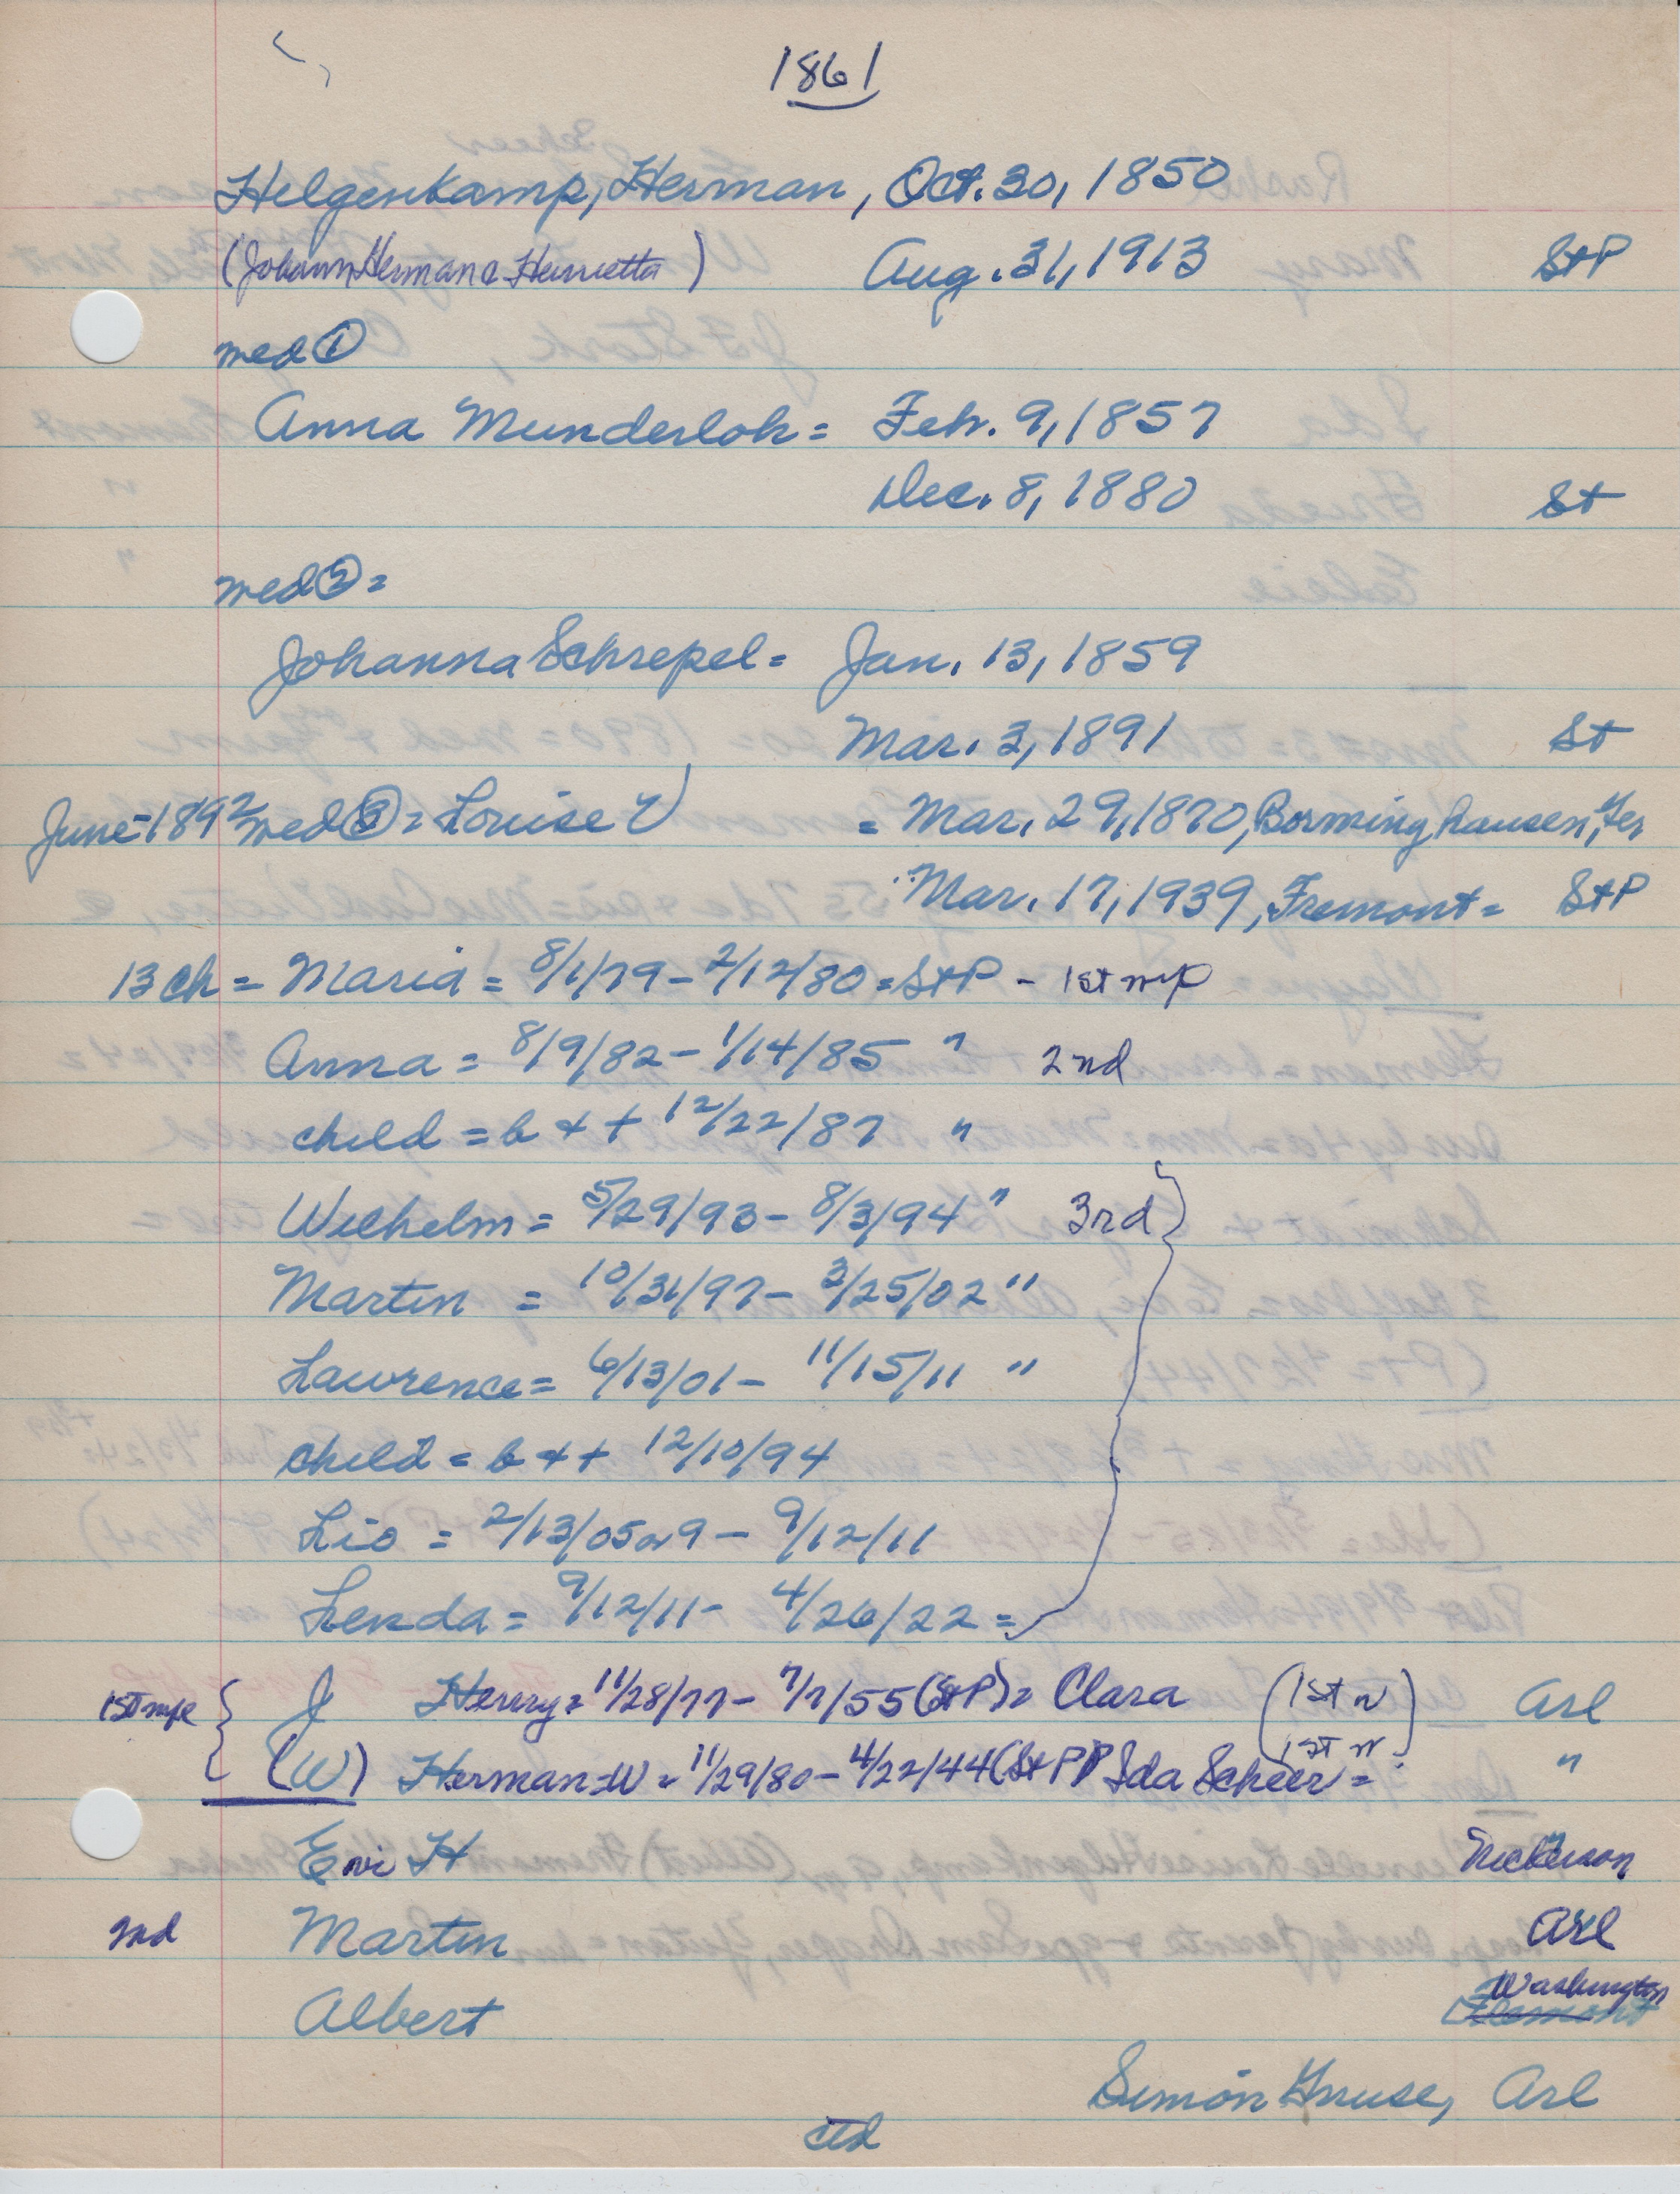 1861
Helgenkamp, Herman, Oct. 30, 1850
(Johann Herman & Henrietta) Aug. 31, 1913 St P
med ①
Anna Munderloh = Feb. 9, 1857
Dec. 8, 1880 St
med ② =
Johanna Schrepel = Jan. 13, 1859
Mar. 3, 1891 St
June-1892 med ③ = Louise = Mar. 29, 1870, Borminghausen, Ger
Mar. 17, 1939, Fremont = St P
13 ch = Maria = 8/1/79 - 2/12/80 = St P - 1st
Anna = 8/9/82 - 1/14/85 " 2nd
child = b & + 12/22/87 "
Wilhelm = 5/29/93 - 8/3/94 " 3rd
Martin = 10/31/97 - 3/25/02 "
Lawrence = 6/13/01 - 11/15/11 "
child = b & + 12/10/94
Lio = 2/13/05 or 9 - 9/12/11
Lenda = 9/12/11 - 4/26/22 =
1st J Henry = 11/28/77 - 7/7/55 (St P) = Clara (1st w) Arl
(W) Herman W = 11/29/80 - 4/22/44 (St P) Ida Scheer = 1st w "
H Nickerson
2nd Martin Arl
Albert Washington Fremont
Simon Gruse, Arl
ctd